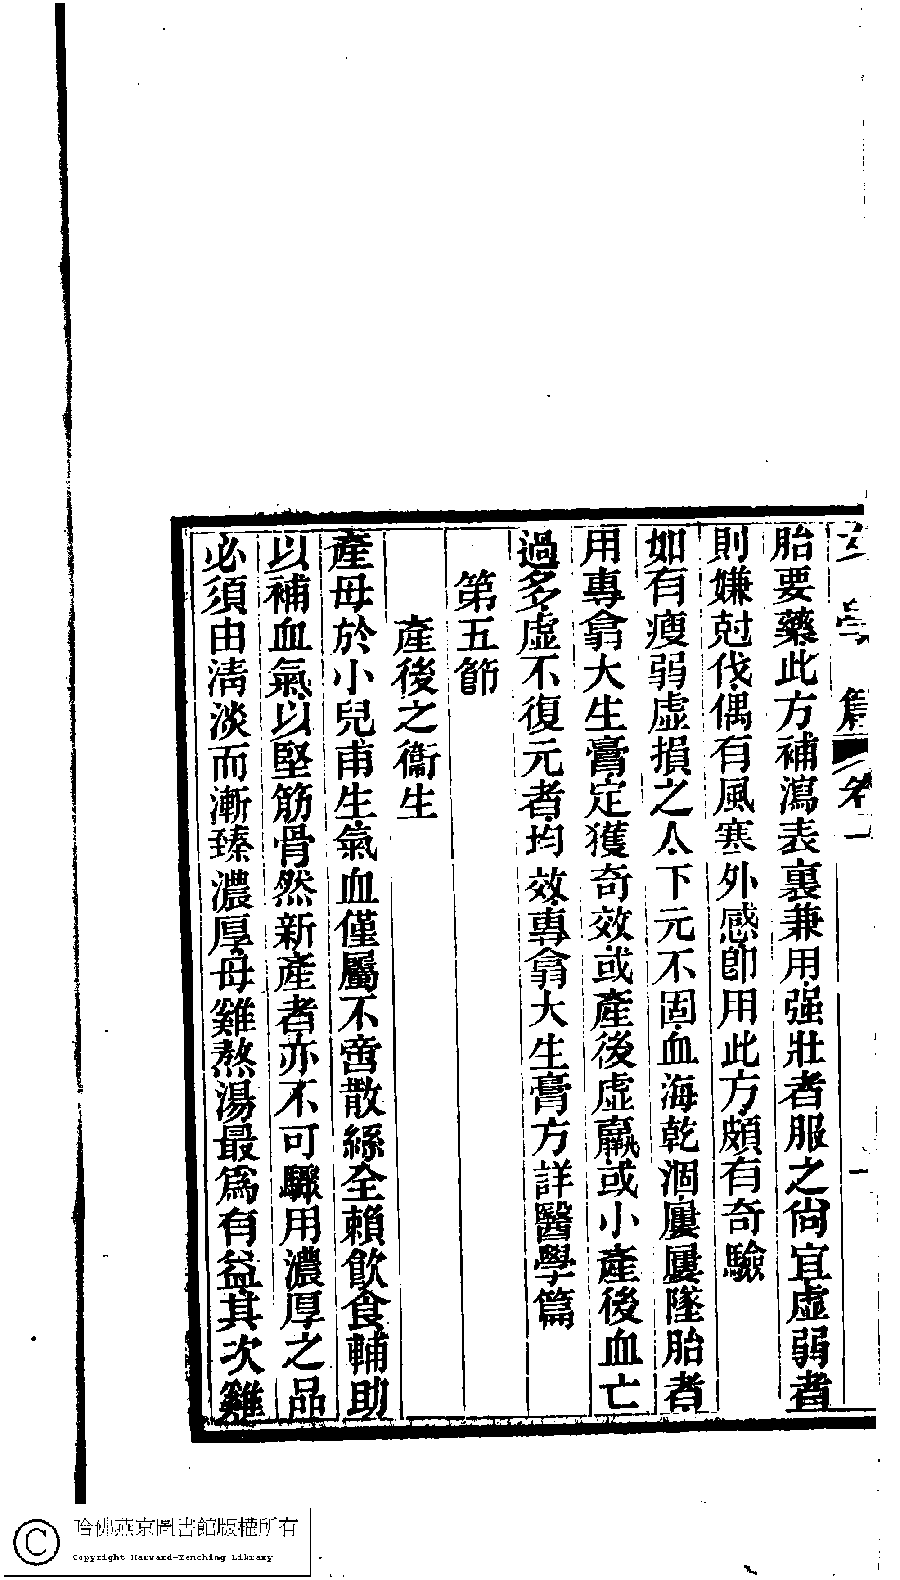 胎要藥此方補瀉表裏兼用强壯者服之尙宜虛弱者
則嫌尅伐偶有風寒外感卽用此方頗有奇驗
如有瘦弱虛損之人下元不固血海乾涸屢屢墜胎者
用專翕大生膏定獲奇效或產後虛羸或小產後血亡
過多虛不復元者均效專翕大生膏方詳醫學篇
第五節
產後之衞生
產母於小兒甫生氣血僅屬不啻散絲全賴飮食輔助
以補血氣以堅筋骨然新產者亦不可驟用濃厚之品
必須由淸淡而漸臻濃厚母雞熬湯最爲有益其次雞
哈佛燕京圖書館版權所有
Copyright Harvard-Yenching Library